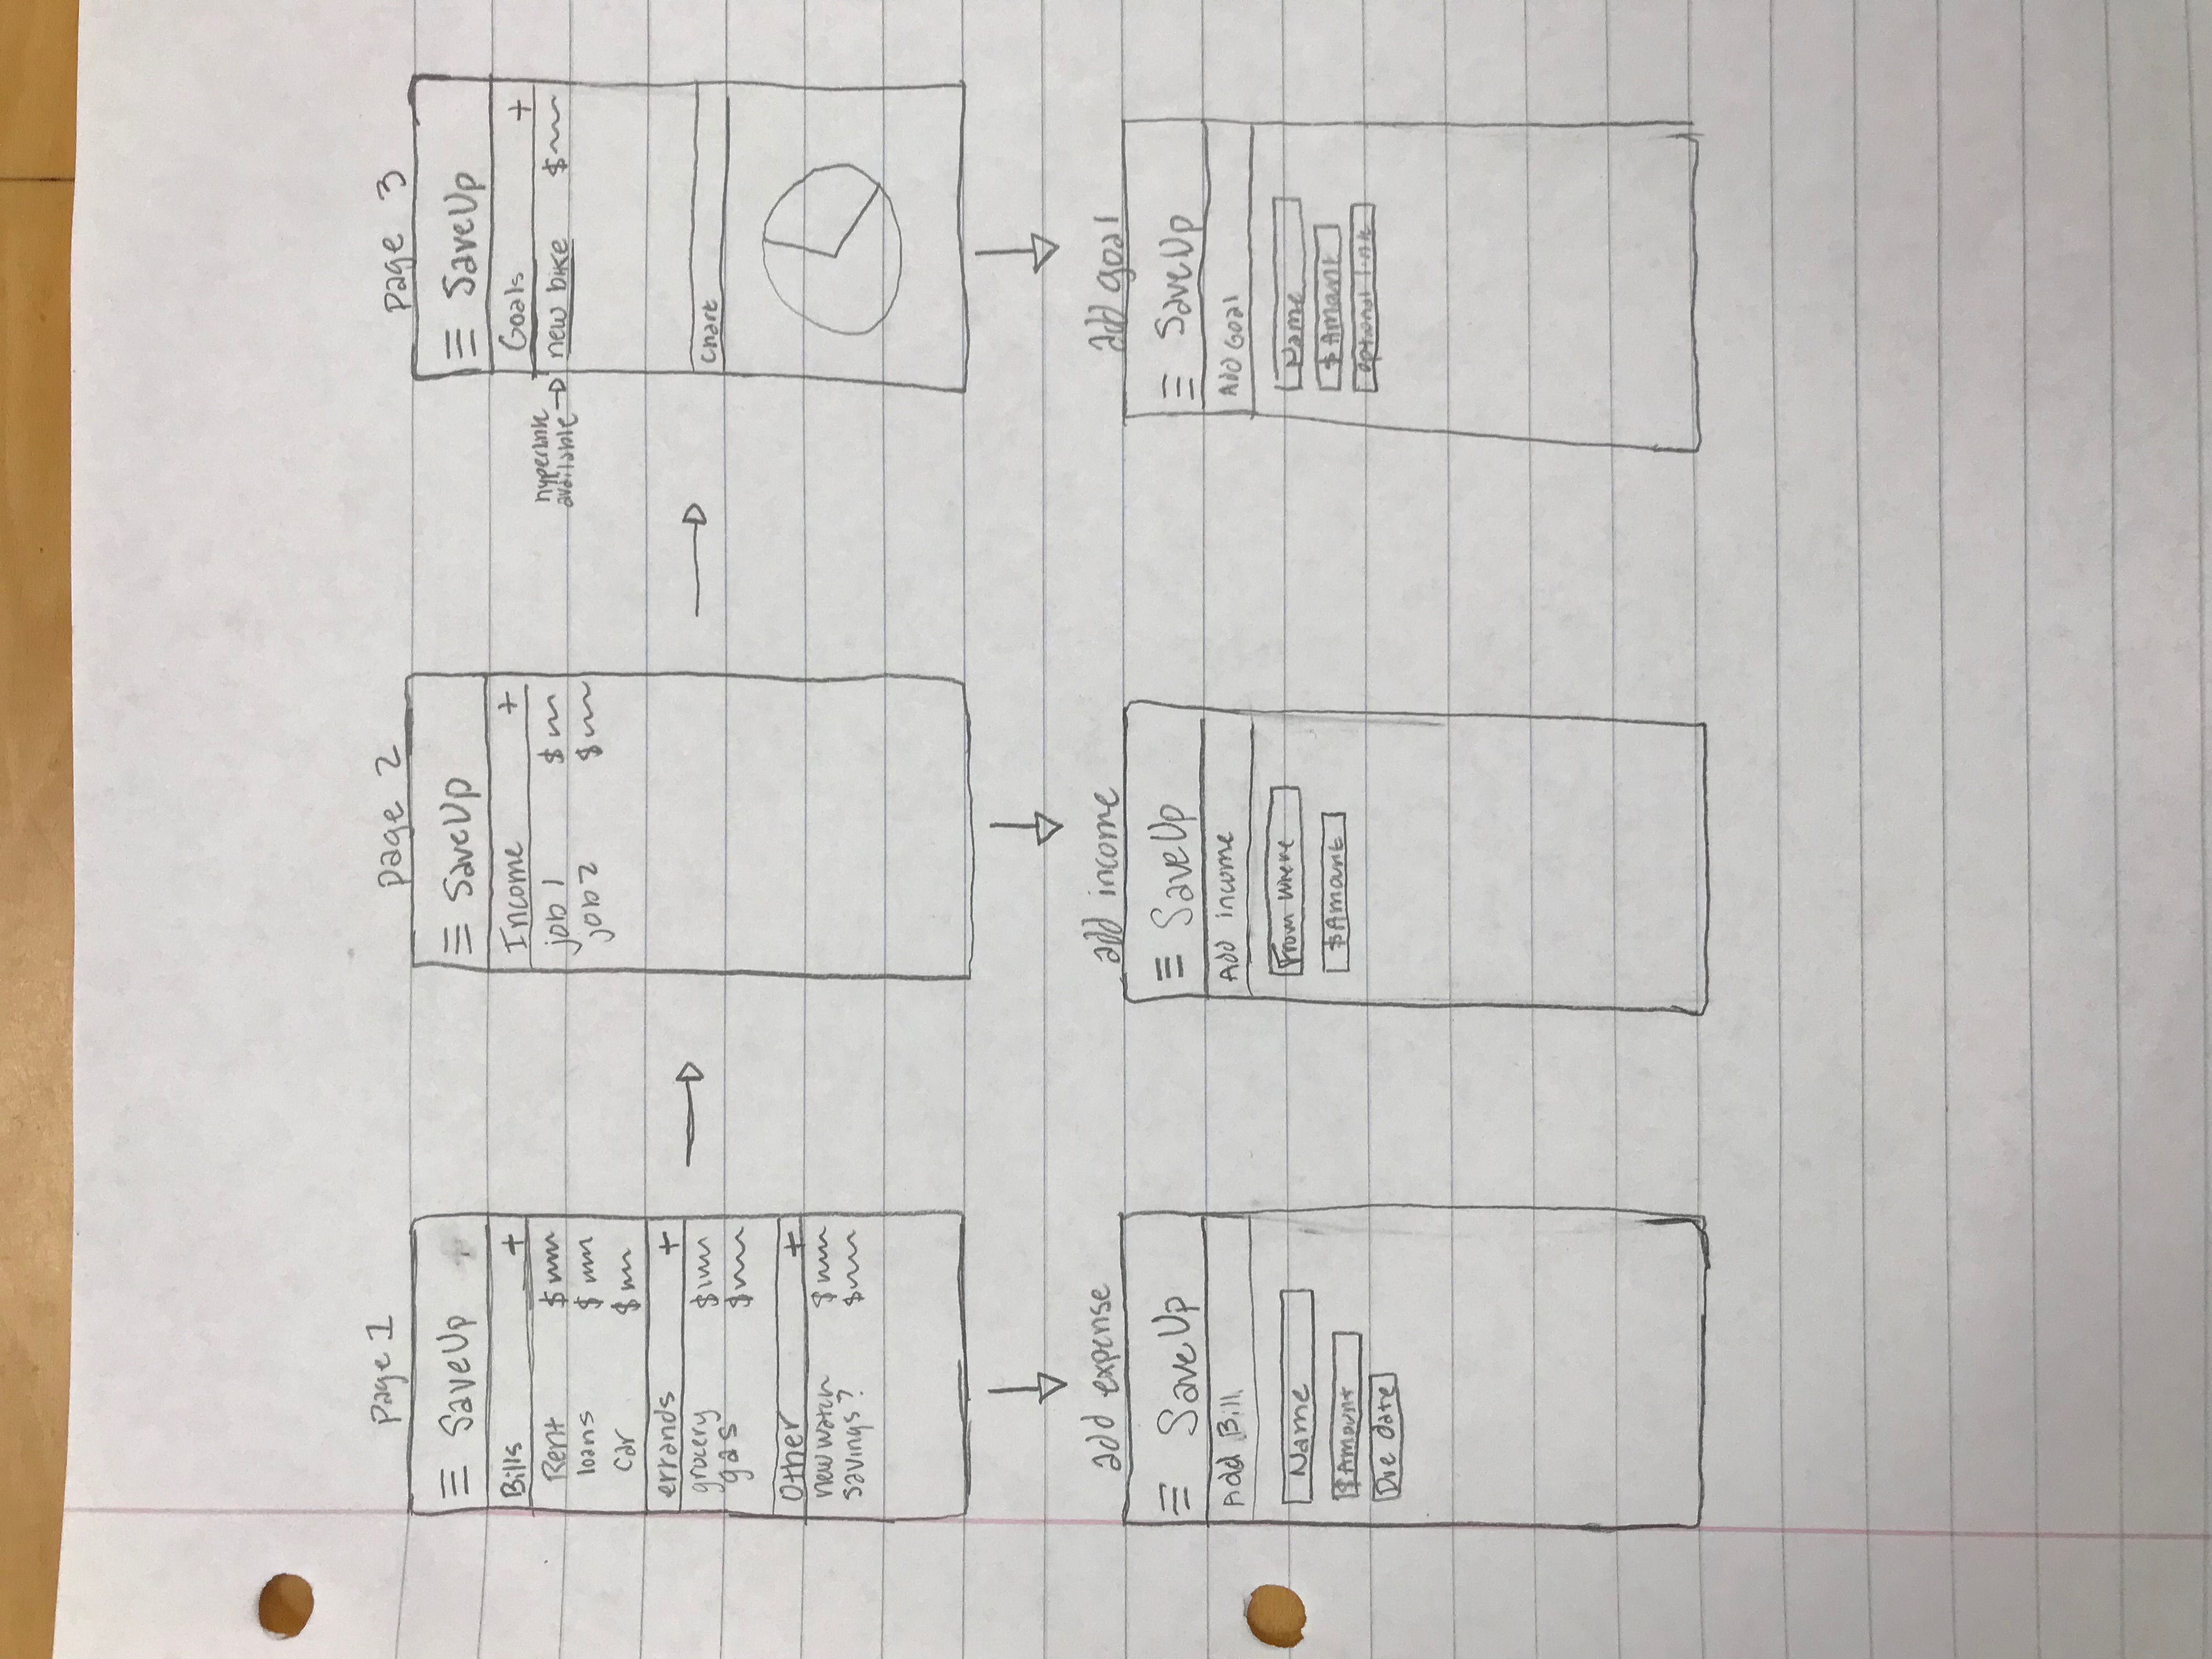 Page 1
☰ SaveUp
Bills +
Rent $
loans $
car $
errands +
grocery $
gas $
Other +
new watch $
savings? $
page 2
☰ SaveUp
Income +
job 1 $
job 2 $
page 3
☰ SaveUp
Goals +
hyperlink
available
new bike $
Chart
add expense
☰ SaveUp
Add Bill
Name
$Amount
Due date
add income
☰ SaveUp
Add income
From where
$Amount
add goal
☰ SaveUp
Add Goal
Name
$Amount
optional link